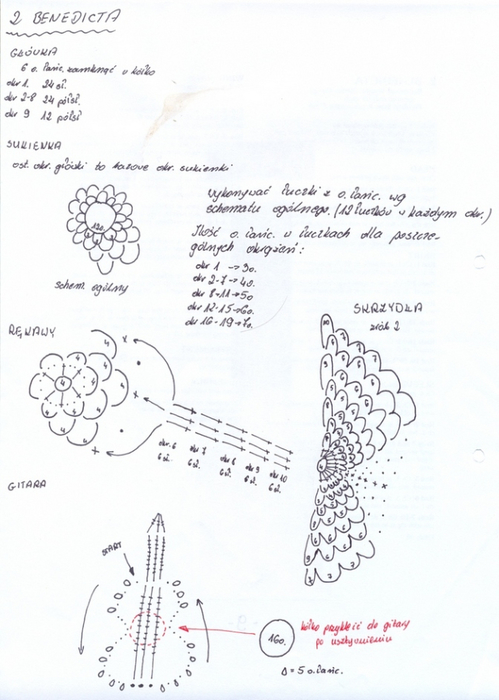 2 BENEDICTA
GŁÓWKA
6 o. łańc. zamknąć w kółko
okr 1. 24 sł.
okr 2-8 24 półsł.
okr 9 12 półsł
SUKIENKA
ost. okr. główki to bazowe okr. sukienki
wykonywać łuczki z o. łańc. wg
schematu ogólnego. (12 łuczków w każdym okr.)
Ilość o. łańc. w łuczkach dla poszcze-
gólnych okrążeń:
okr 1 → 3o.
okr 2-7 → 4o.
okr 8-11 → 5o
okr 12-15 → 6o.
okr 16-19 → 7o.
schem. ogólny
SKRZYDŁA
zrób 2
RĘKAWY
okr. 6 okr 7 okr 8 okr 9 okr 10
6 sł. 6 sł. 6 sł. 6 sł. 6 sł.
GITARA
START
16o.
kółko przykleić do gitary
po usztywnieniu
0 = 5 o. łańc.